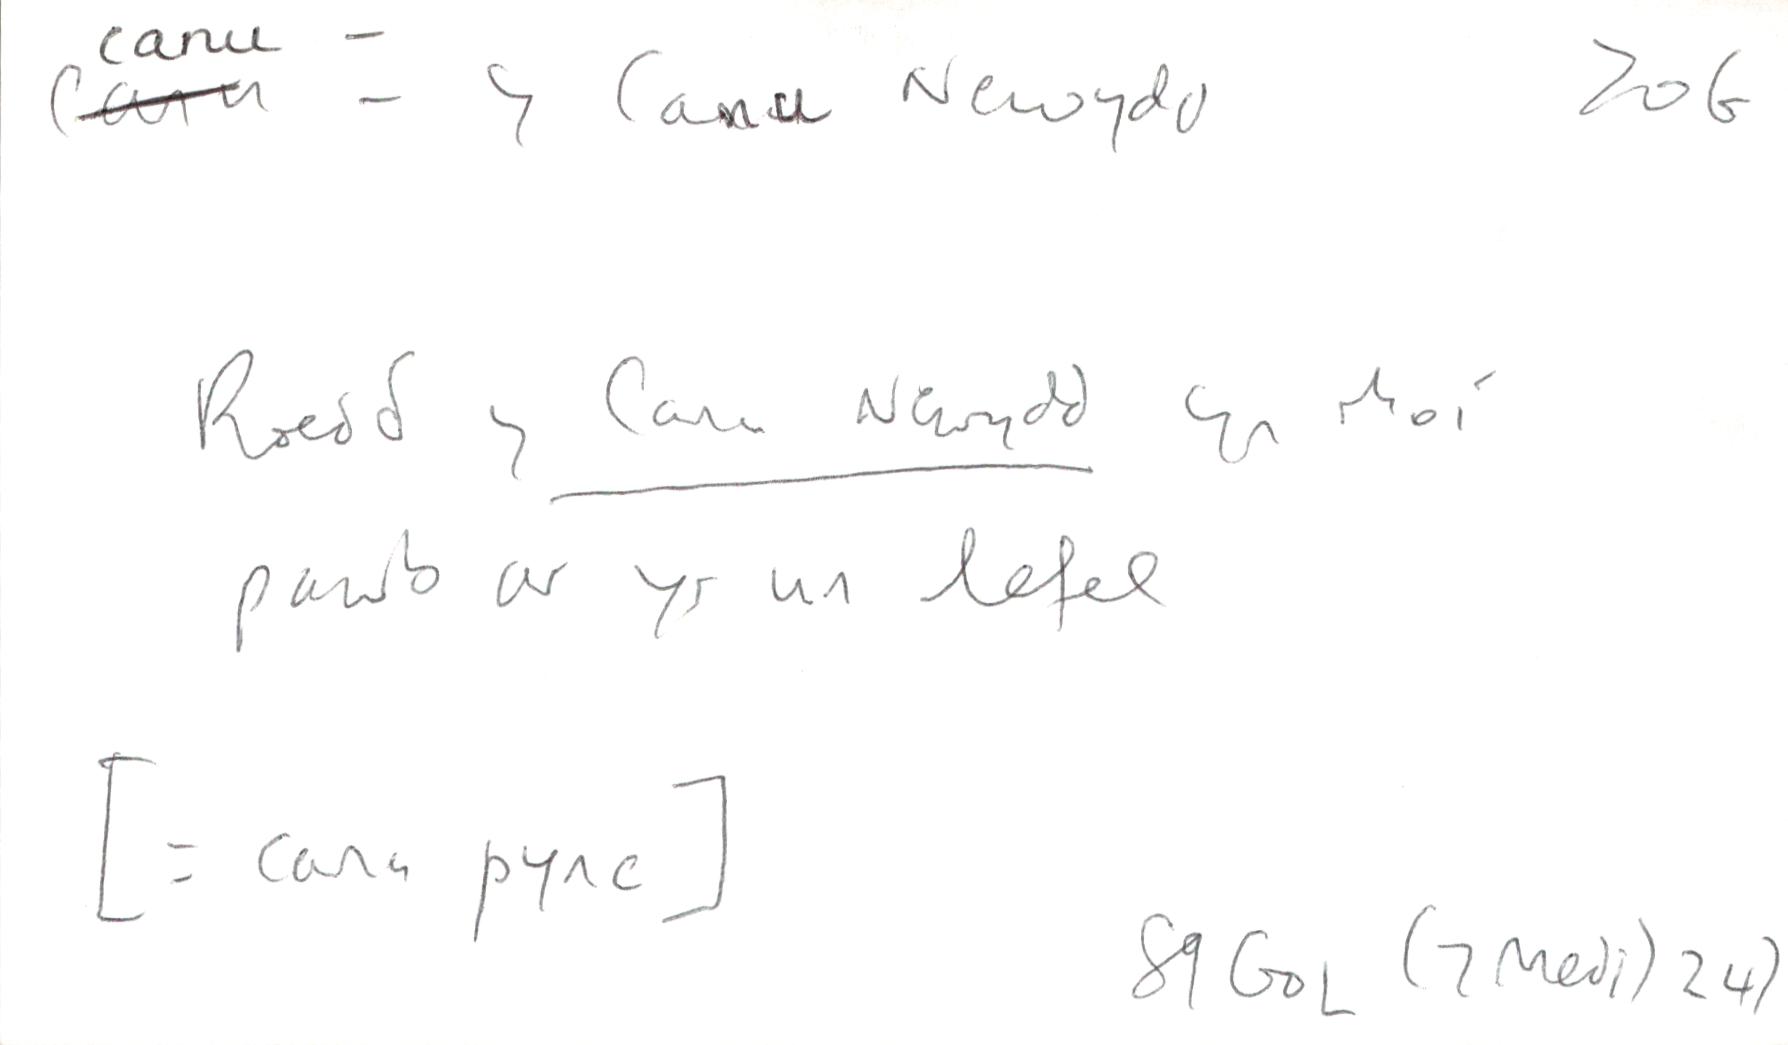 canu -
Canu - y Canu Newydd 20G
Roedd y Canu Newydd yn rhoi
pawb ar yr un lefel
[= canu pync]
89 GOL (7 Medi) 24)